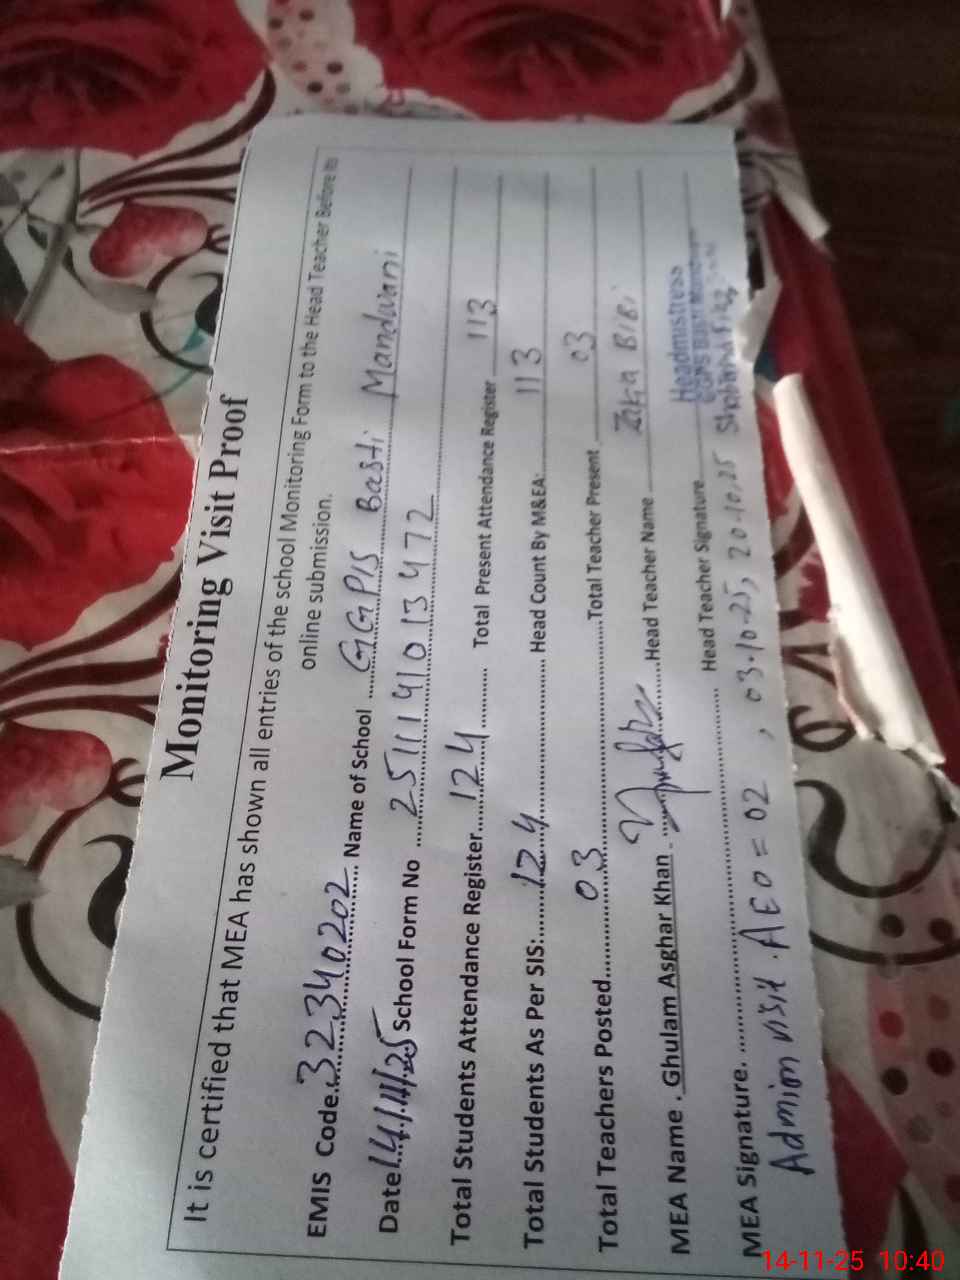 Monitoring Visit Proof
It is certified that MEA has shown all entries of the school Monitoring Form to the Head Teacher Before its
online submission.
EMIS Code..32340202... Name of School ...GGP/S Basti Mandwani
Date 14/11/25 School Form No ....2511141013472
Total Students Attendance Register....124........ Total Present Attendance Register 113
Total Students As Per SIS:......124........ Head Count By M&EA: 113
Total Teachers Posted........03........Total Teacher Present 03
MEA Name . Ghulam Asghar Khan . ........Head Teacher Name Zika BiBi
MEA Signature. ........ Head Teacher Signature
Headmistress
GGPS Basti
Admion visit . AEO = 02 , 03.10-25, 20.10.25
14-11-25 10:40